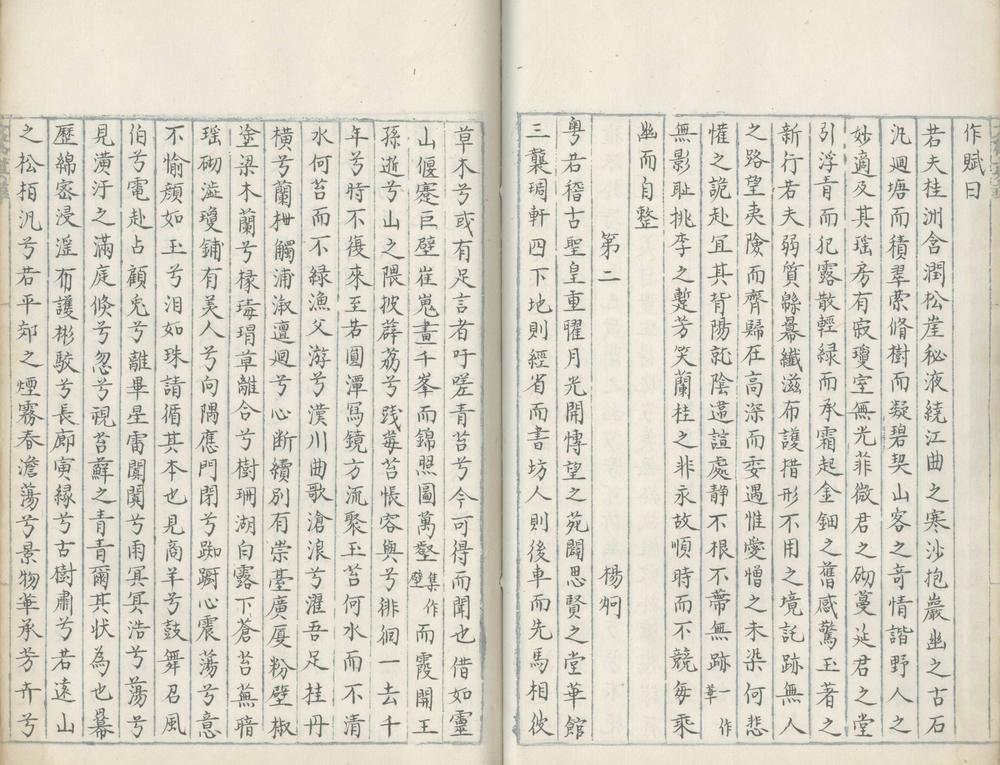 作賦曰
若夫桂洲含潤松崖秘液繞江曲之寒沙抱巖幽之古石
汎迴塘而積翠縈脩樹而凝碧契山客之奇情諧野人之
妙適及其瑶房有寂瓊室無光菲微君之砌蔓延君之堂
引浮青而犯露散輕緑而承霜起金鈿之舊感驚玉著之
新行若夫弱質緜羃纎滋布護措形不用之境託跡無人
之路望夷險而齊歸在高深而委遇惟愛憎之未染何悲
懽之詭赴宜其背陽就陰違諠處静不根不帶無跡一作華
無影耻桃李之蹔芳笑蘭桂之非永故順時而不競每乘
幽而自整
第二 楊炯
粤若稽古聖皇重曜月光開愽望之苑闢思賢之堂華館
三襲琱軒四下地則經省而書坊人則後車而先馬相彼
草木兮或有足言者吁嗟青苔兮今可得而聞也借如靈
山偃蹇巨壁崔嵬畫千峯而錦照圖萬壑集作壁而霞開王
孫逝兮山之隈披薜荔兮踐莓苔悵容與兮徘徊一去千
年兮時不復來至若圓潭寫鏡方流聚玉苔何水而不清
水何苔而不緑漁父游兮漢川曲歌滄浪兮濯吾足桂丹
横兮蘭枻觸浦溆邅迴兮心断續别有崇臺廣厦粉壁椒
塗梁木蘭兮椽瑇瑁草離合兮樹珊湖白露下蒼苔蕪暗
瑶砌溢瓊鋪有美人兮向隅應門閉兮踟蹰心震蕩兮意
不愉顔如玉兮泪如珠請循其本也見商羊兮鼓舞召風
伯兮電赴占顧兎兮離畢星雷闐闐兮雨冥冥浩兮蕩兮
見潢汙之滿庭倐兮忽兮視苔蘚之青青爾其狀為也羃
歷綿密浸滛布護彬駮兮長廊寅縁兮古樹肅兮若遠山
之松栢汎兮若平郊之煙霧春澹蕩兮景物華承芳卉兮